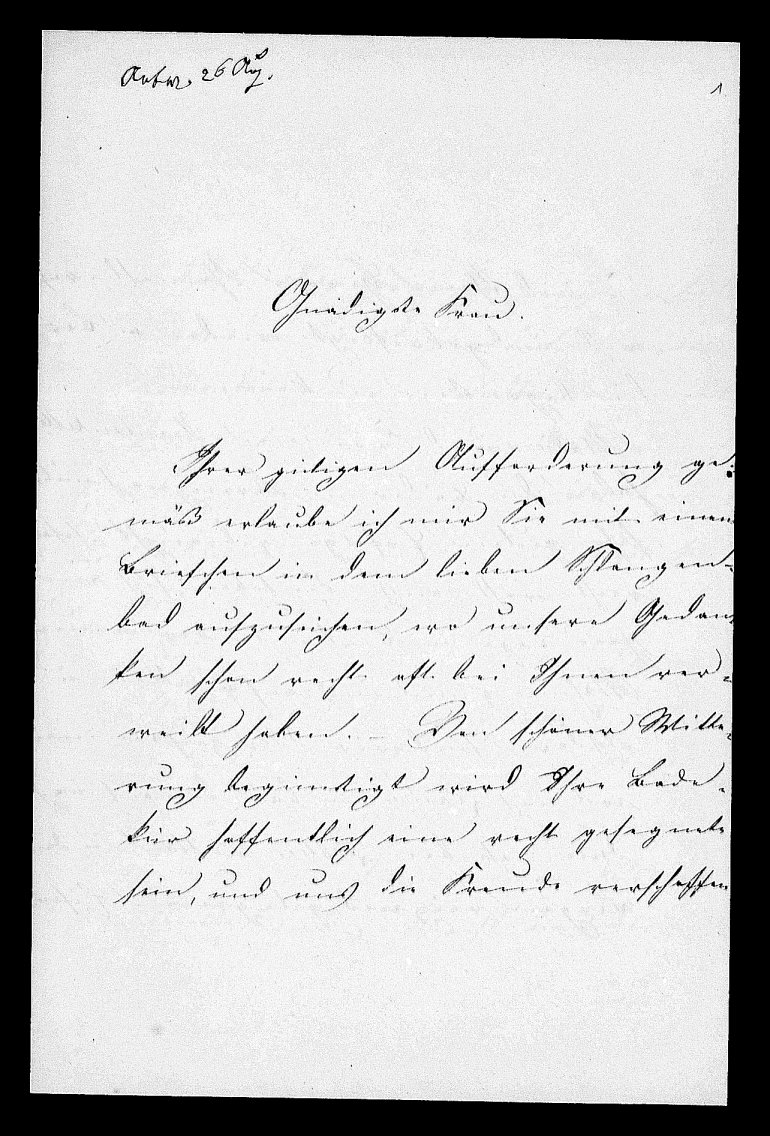 Antw. 26 Aug.
1
Gnädigste Frau.
Ihrer gütigen Aufforderung ge-
mäß erlaube ich mir Sie mit einem
Briefchen in dem lieben Schlangen-
bad aufzusuchen, wo unsere Gedan-
ken schon recht oft bei Ihnen ver-
weilt haben. – Von schöner Witte-
rung begünstigt wird Ihre Bade-
kur hoffentlich eine recht gesegnete
sein, und uns die Freude verschaffen